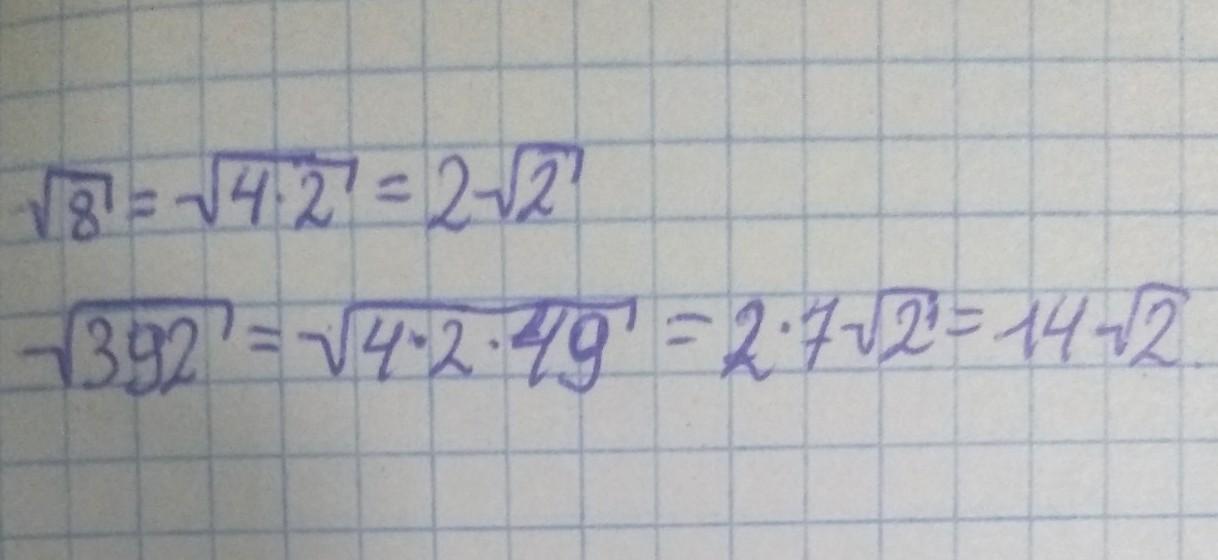 √8 = √4·2 = 2√2
√392 = √4·2·49 = 2·7√2 = 14√2